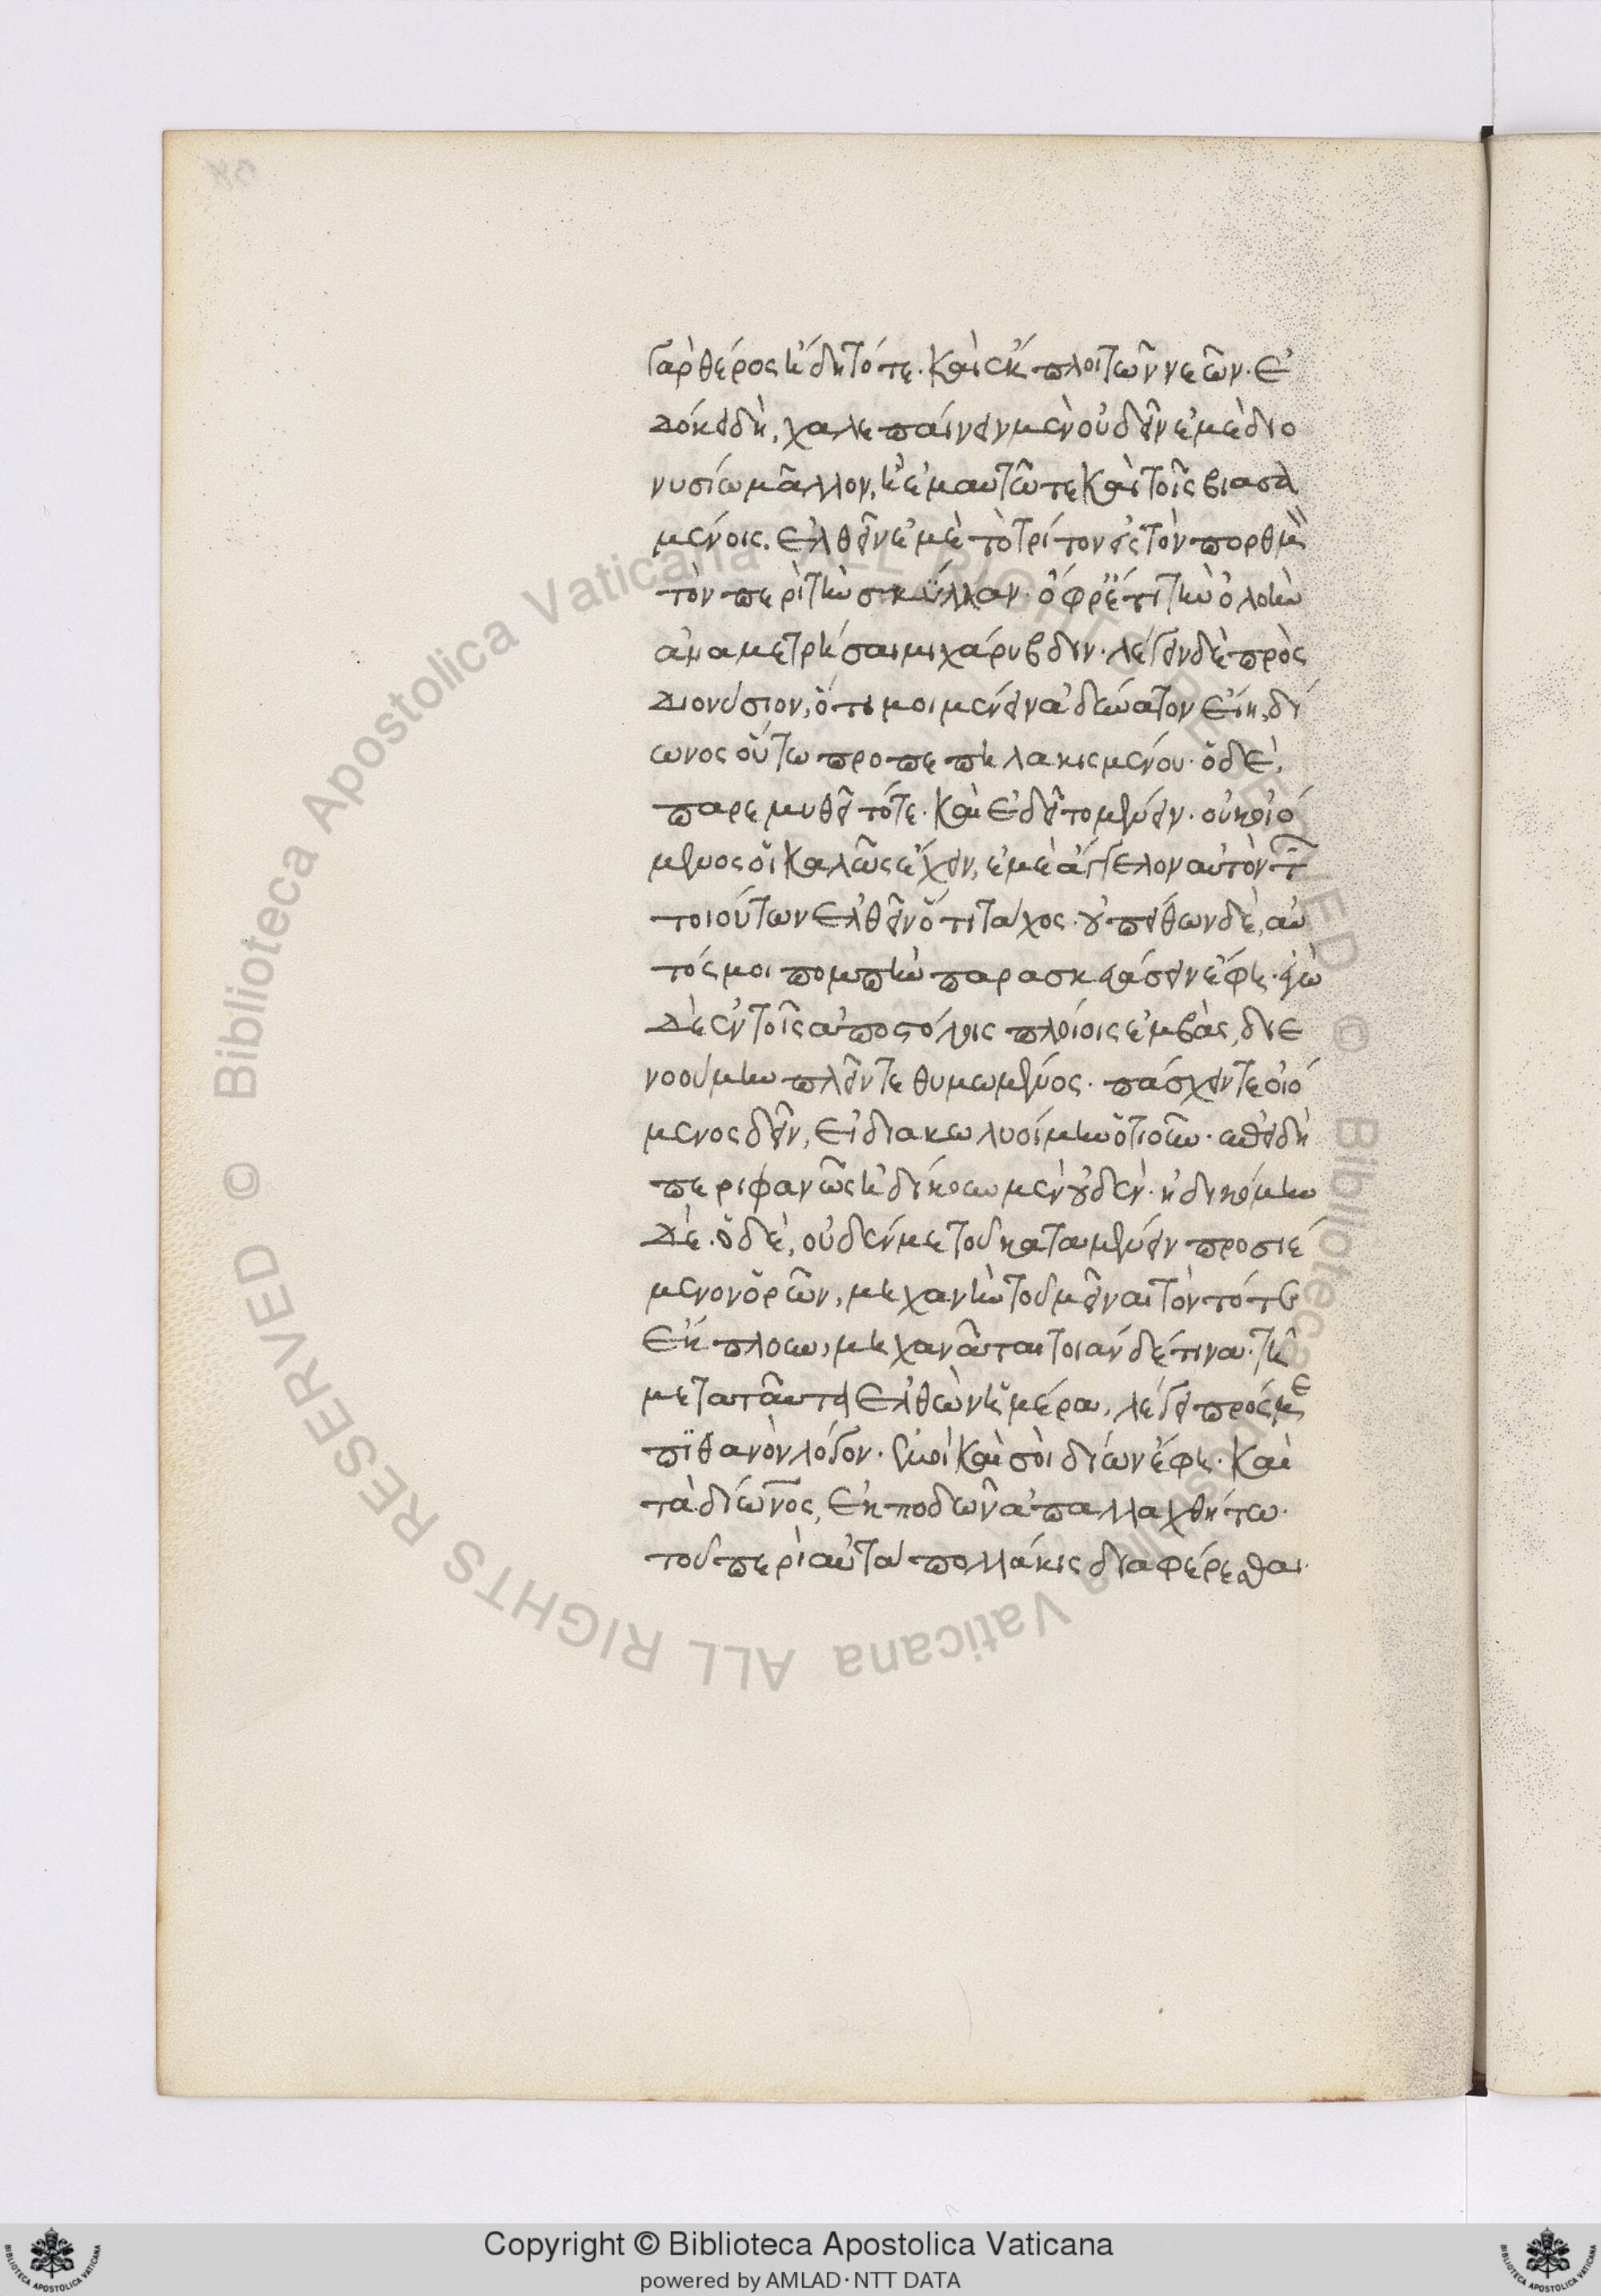 γὰρ θέρος ἤδη τότε· καὶ ἔκπλοι τῶν νεῶν· ἐ
δόκει δὴ, χαλεπαίνειν μὲν οὐ δεῖν ἐμὲ διο
νυσίω μᾶλλον, ἢ ἐμαυτῶ τε καὶ τοῖς βιασα
μένοις. ἐλθεῖν ἐμὲ τὸ τρίτον εἰς τὸν πορθμὸν
τὸν περὶ τὴν σκύλλαν· ὄφρ' ἔτι τὴν ὀλοὴν
ἀναμετρήσαιμι χάρυβδιν· λέγειν δὲ πρὸς
Διονύσιον, ὅτι μοι μένειν ἀδύνατον εἴη, δί
ωνος οὕτω προπεπηλακισμένου· ὁ δὲ,
παρεμυθεῖτό τε· καὶ ἐδεῖτο μένειν· οὐκ οἰό
μενος οἷ καλῶς ἔχειν, ἐμὲ ἄγγελον αὐτὸν τ
τοιούτων ἐλθεῖν ὅτι τάχος· οὐ πείθων δὲ, αὐ
τός μοι πομπὴν παρασκευάσειν ἔφη· ἐγὼ
δὲ ἐν τοῖς ἀποστόλοις πλοίοις ἐμβὰς, διε
νοούμην πλεῖν τεθυμωμένος· πάσχειν τε οἰό
μενος δεῖν, εἰ διακωλυοίμην ὁτιοῦν· ἐπειδὴ
περιφανῶς ἠδίκουν μὲν οὐδέν· ἠδικούμην
δὲ. ὁ δὲ, οὐδέν με τοῦ καταμένειν προσιέ
μενον ὁρῶν, μηχανὴν τοῦ μεῖναι τὸν τότε
ἔκπλουν, μηχανᾶται τοιάνδέ τινα· τῆ
μετὰ ταῦτα ἐλθὼν ἡμέρα, λέγει πρός με
πιθανὸν λόγον· ἐμοὶ καὶ σοὶ δίων ἔφη· καὶ
τὰ δίωνος, ἐκποδὼν ἀπαλλαχθήτω·
τοῦ περὶ αὐτὰ πολλάκις διαφέρεσθαι·
Copyright © Biblioteca Apostolica Vaticana
powered by AMLAD·NTT DATA